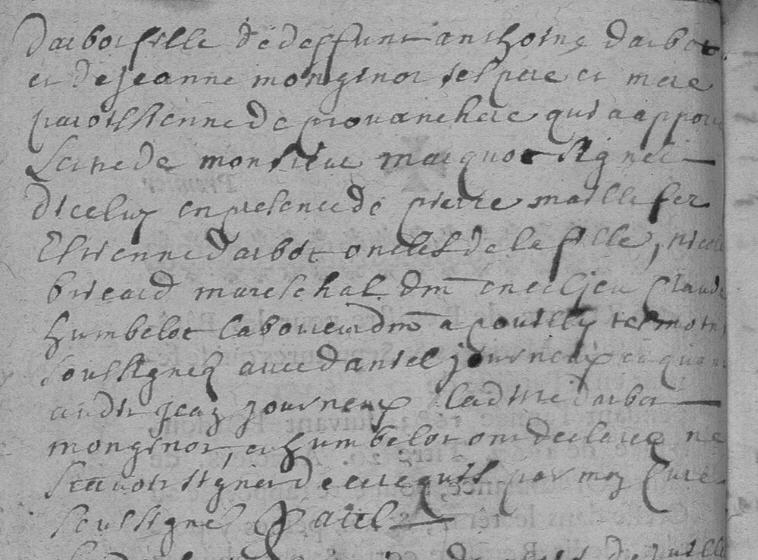 darbot fille de deffunt anthoine darbot
et de jeanne monginot ses pere et mere
paroissienne de provanchere qui a apporté
de monsieur marquot signé
diceluy en presence de pierre maillefer
Estienne darbot oncles de la fille, nicole
briard mareschal dmt en ce lieu Claude
humbelot laboureur dmt a pouilly tesmoins
soussignez avec daniel journeux et quant
audit jean journeux ladite darbot
monginot, et humbelot ont declarez ne
scavoir signer de ce requis par moy Curé
soussigné Patel